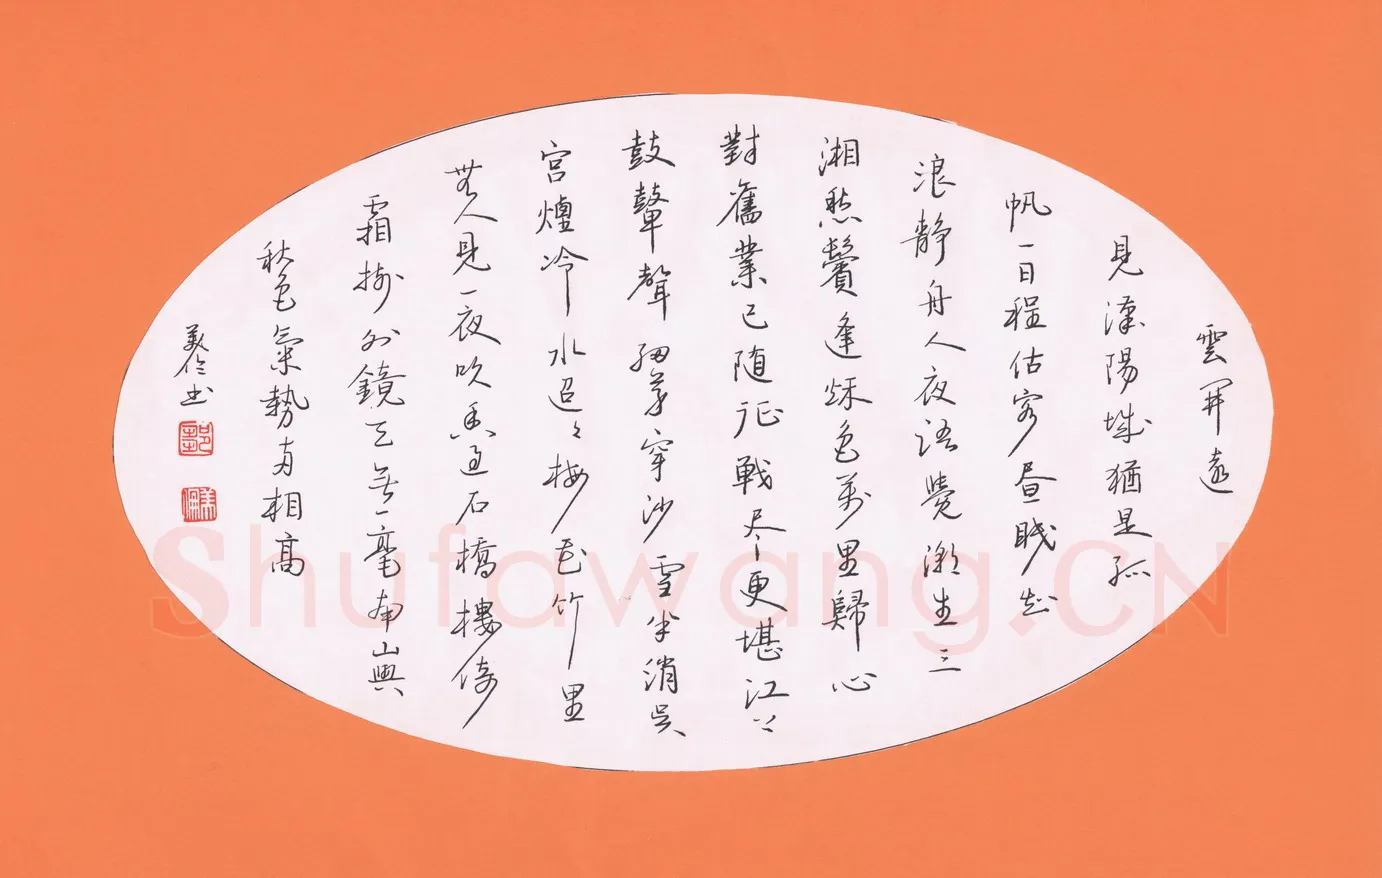 雲開遠
見漢陽城猶是孤
帆一日程估客晝眠知
浪靜舟人夜語覺潮生三
湘愁鬢逢秋色萬里歸心
對舊業已随征戰尽更堪江上
鼓鼙聲細草穿沙雪半消吳
宮煙冷水迢迢梅花竹里
無人見一夜吹香過石橋樓倚
霜樹外鏡天無一毫南山與
秋色氣勢兩相高
书
Shufawang.CN